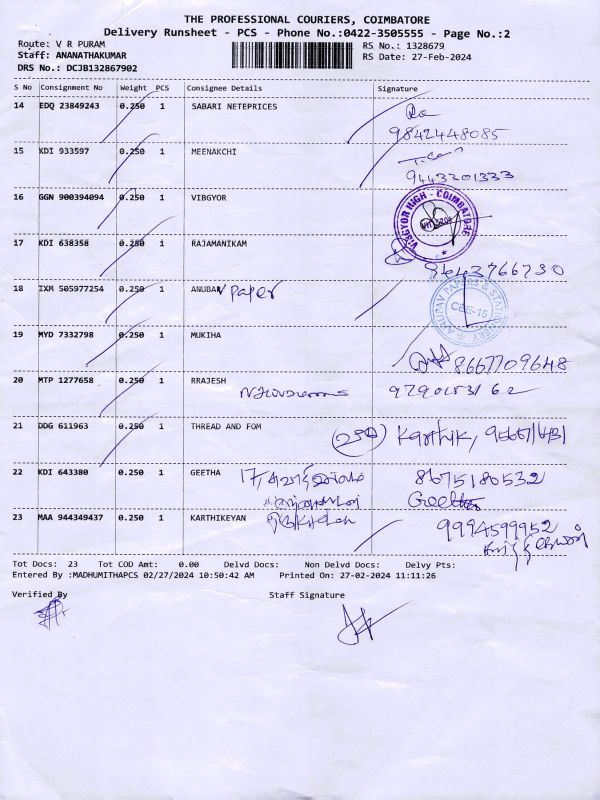 THE PROFESSIONAL COURIERS, COIMBATORE
Delivery Runsheet - PCS - Phone No.:0422-3505555 - Page No.:2
Route: V R PURAM
RS No.: 1328679
Staff: ANANATHAKUMAR
RS Date: 27-Feb-2024
DRS No.: DCJB132867902
S No Consignment No Weight PCS Consignee Details Signature
14 EDQ 23849243 0.250 1 SABARI NETEPRICES
9842448085
15 KDI 933597 0.250 1 MEENAKCHI
9443201333
16 GGN 900394094 0.250 1 VIBGYOR
VIBGYOR HIGH - COIMBATORE
17 KDI 638358 0.250 1 RAJAMANIKAM
9643766730
18 IXM 505977254 0.250 1 ANUBAV paper
ANUPAV PAPERS & STATIONERY
CBE-15
19 MYD 7332798 0.250 1 MUKIHA
8667709648
20 MTP 1277658 0.250 1 RRAJESH
21 DDG 611963 0.250 1 THREAD AND FOM
(250) Karthik,
22 KDI 643380 0.250 1 GEETHA 17/
8675180532
Geetha
23 MAA 944349437 0.250 1 KARTHIKEYAN
9994599952
Tot Docs: 23 Tot COD Amt: 0.00 Delvd Docs: Non Delvd Docs: Delvy Pts:
Entered By :MADHUMITHAPCS 02/27/2024 10:50:42 AM Printed On: 27-02-2024 11:11:26
Verified By Staff Signature